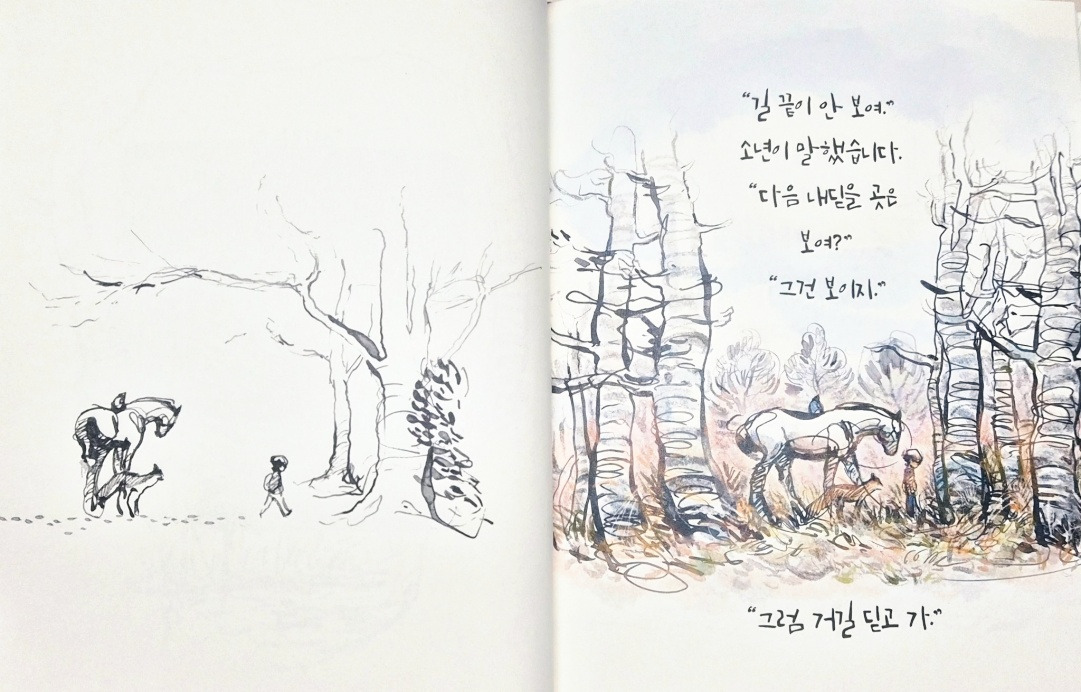 “길 끝이 안 보여.”
소년이 말했습니다.
“다음 내딛을 곳은
보여?”
“그건 보이지.”
“그럼 거길 딛고 가.”